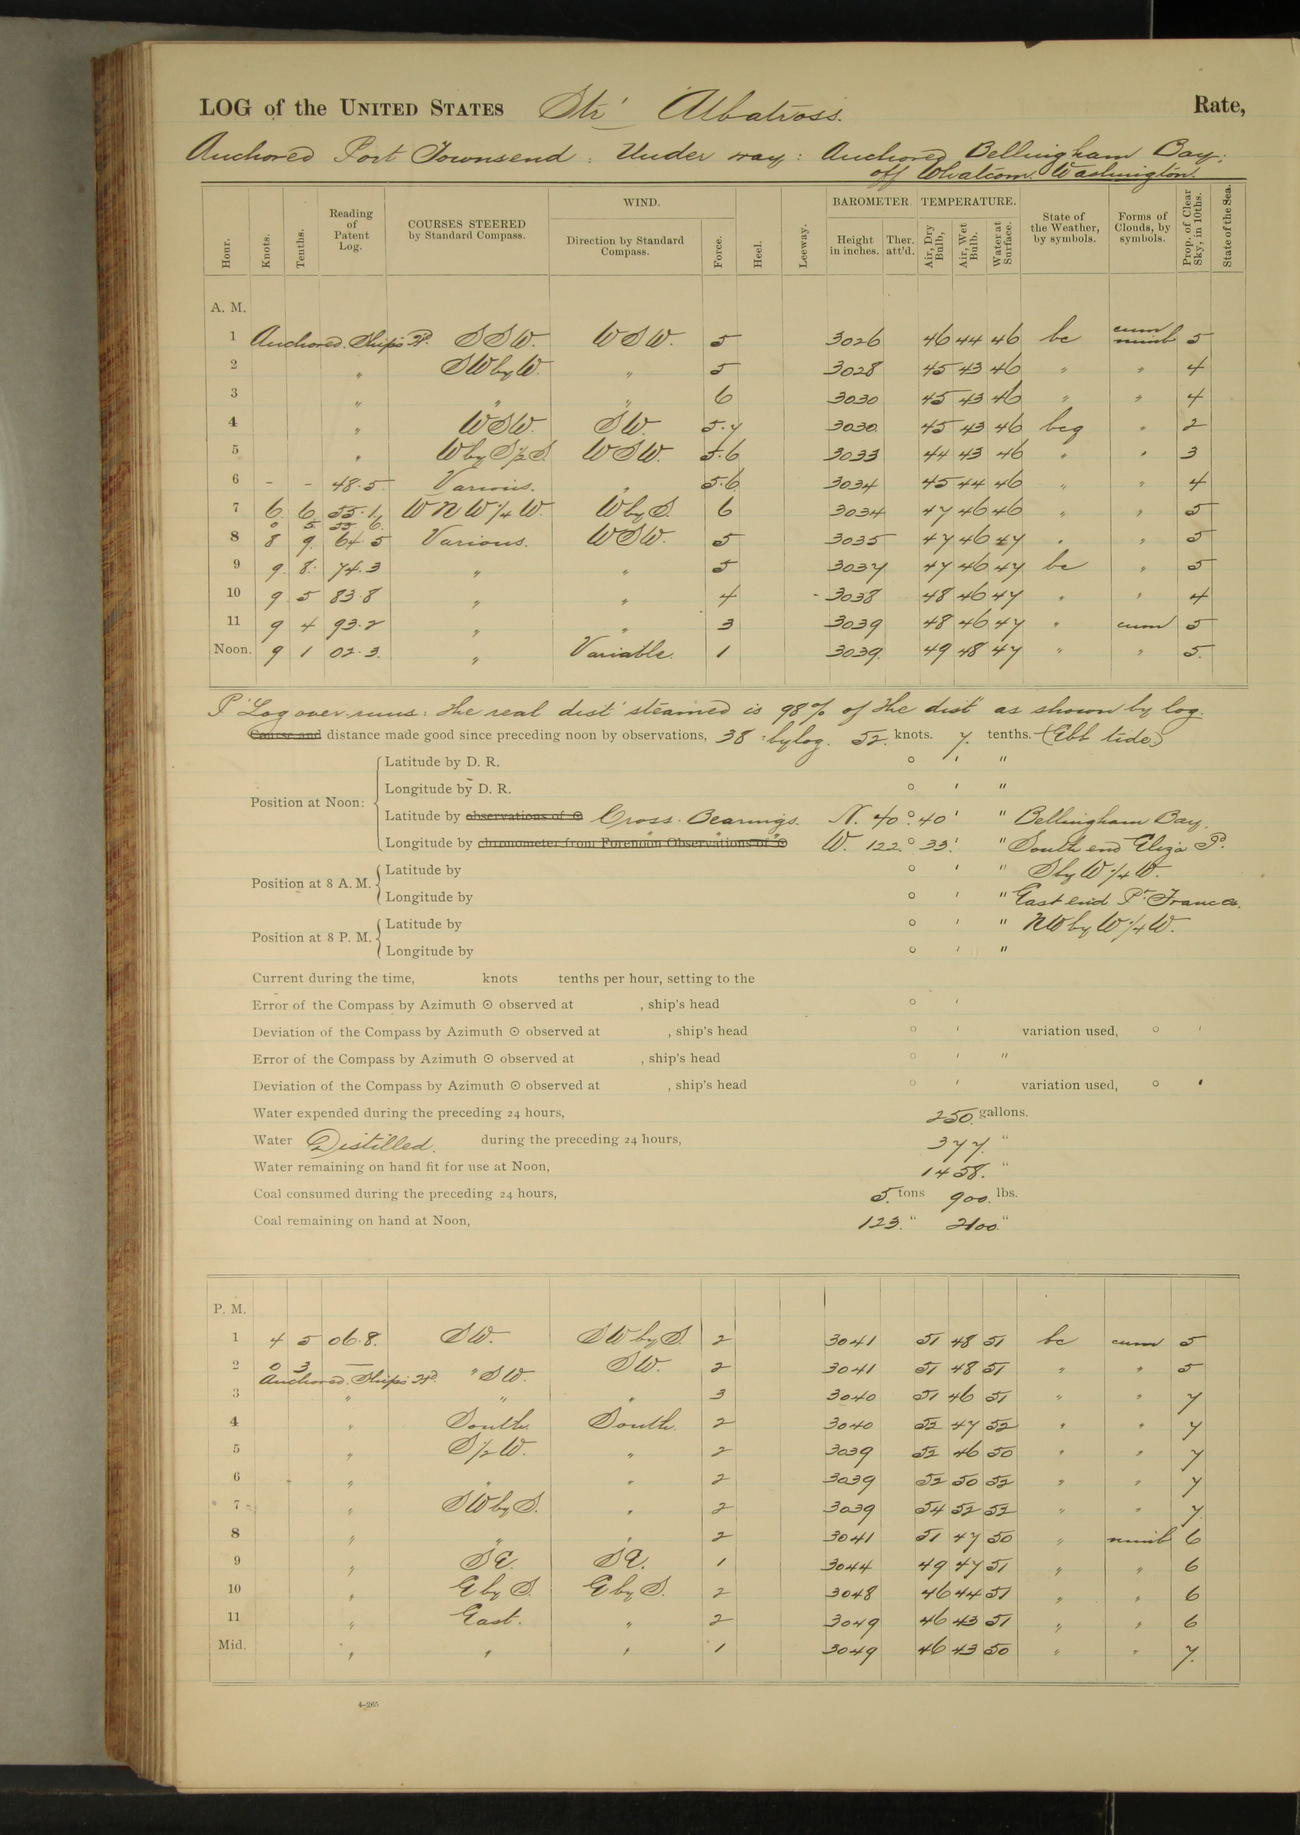 LOG of the UNITED STATES Str Albatross. Rate,
Anchored Port Townsend : Under way : Anchored Bellingham Bay;
off Whatcom. Washington.
Hour. Knots. Tenths. Reading of Patent Log. COURSES STEERED by Standard Compass. WIND. Direction by Standard Compass. Force. Heel. Leeway. BAROMETER. Height in inches. Ther. att'd. TEMPERATURE. Air, Dry Bulb, Air, Wet Bulb. Water at Surface. State of the Weather, by symbols. Forms of Clouds, by symbols. Prop. of Clear Sky, in 10ths. State of the Sea.
A. M.
1 Anchored. Ship's Hd. SSW. WSW. 5 3026 46 44 46 bc cum nimb 5
2 " SW by W. " 5 3028 45 43 46 " " 4
3 " " " 6 3030 45 43 46 " " 4
4 " WSW. SW 5.4 3030 45 43 46 bcq " 2
5 " W by S 1/2 S. WSW. 5.6 3033 44 43 46 " " 3
6 - - 48.5 Various. " 5.6 3034 45 44 46 " " 4
7 6 6 55.1 WNW 1/4 W. W by S. 6 3034 47 46 46 " " 5
0 5 55 6
8 8 9 64 5 Various. WSW. 5 3035 47 46 47 " " 5
9 9 8 74.3 " " 5 3037 47 46 47 bc " 5
10 9 5 83.8 " " 4 3038 48 46 47 " " 4
11 9 4 93.2 " " 3 3039 48 46 47 " cum 5
Noon. 9 1 02.3. " Variable. 1 3039 49 48 47 " " 5.
P Log over runs: the real dist steamed is 98% of the dist as shown by log.
Course and distance made good since preceding noon by observations, 38 : by log. 52 knots. 7. tenths. (Ebb tide)
Latitude by D. R. ° ' "
Longitude by D. R. ° ' "
Position at Noon:
Latitude by observations of ☉ Cross Bearings. N. 40° 40' " Bellingham Bay.
Longitude by chronometer from Forenoon Observations of ☉ " " W. 122° 33' " South end Eliza Id.
Position at 8 A. M. Latitude by ° ' " S by W 1/4 W.
Longitude by ° ' " East end Pt. Frances.
Position at 8 P. M. Latitude by ° ' " NW by W 1/4 W.
Longitude by ° ' "
Current during the time, knots tenths per hour, setting to the
Error of the Compass by Azimuth ☉ observed at , ship's head ° '
Deviation of the Compass by Azimuth ☉ observed at , ship's head ° ' variation used, ° '
Error of the Compass by Azimuth ☉ observed at , ship's head ° ' "
Deviation of the Compass by Azimuth ☉ observed at , ship's head ° ' variation used, ° '
Water expended during the preceding 24 hours, 250 gallons.
Water Distilled. during the preceding 24 hours, 377. "
Water remaining on hand fit for use at Noon, 1458. "
Coal consumed during the preceding 24 hours, 5. tons 900. lbs.
Coal remaining on hand at Noon, 123. " 2100 "
P. M.
1 4 5 06.8 SW. SW by S. 2 3041 51 48 51 bc cum 5
2 0 3 — " SW. SW. 2 3041 51 48 51 " " 5
Anchored. Ship's Hd.
3 " " " 3 3040 51 46 51 " " 7
4 " South. South. 2 3040 52 47 52 " " 7
5 " S 1/2 W. " 2 3039 52 46 50 " " 7
6 " " " 2 3039 52 50 52 " " 7
7 " SW by S. " 2 3039 54 52 52 " " 7
8 " " " 2 3041 51 47 50 " nimb 6
9 " SE. SE. 1 3044 49 47 51 " " 6
10 " E by S. E by S. 2 3048 46 44 51 " " 6
11 " East. " 2 3049 46 43 51 " " 6
Mid. " " " 1 3049 46 43 50 " " 7.
4—265